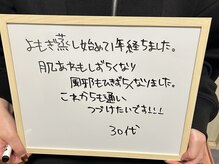 よもぎ蒸し始めて1年経ちました。
肌あれもしずらくなり
風邪もひきずらくなりました。
これからも通い
つづけたいです!!!
30代